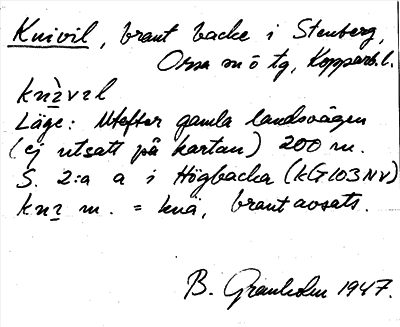 Knivil, brant backe i Stenberg,
Orsa sn ö tg, Kopparb. l.
Läge: Utefter gamla landsvägen
(ej utsatt på kartan) 200 m.
S. 2:a a i Högbacka (kG103NV)
m. = knä, brant avsats.
B. Granholm 1947.